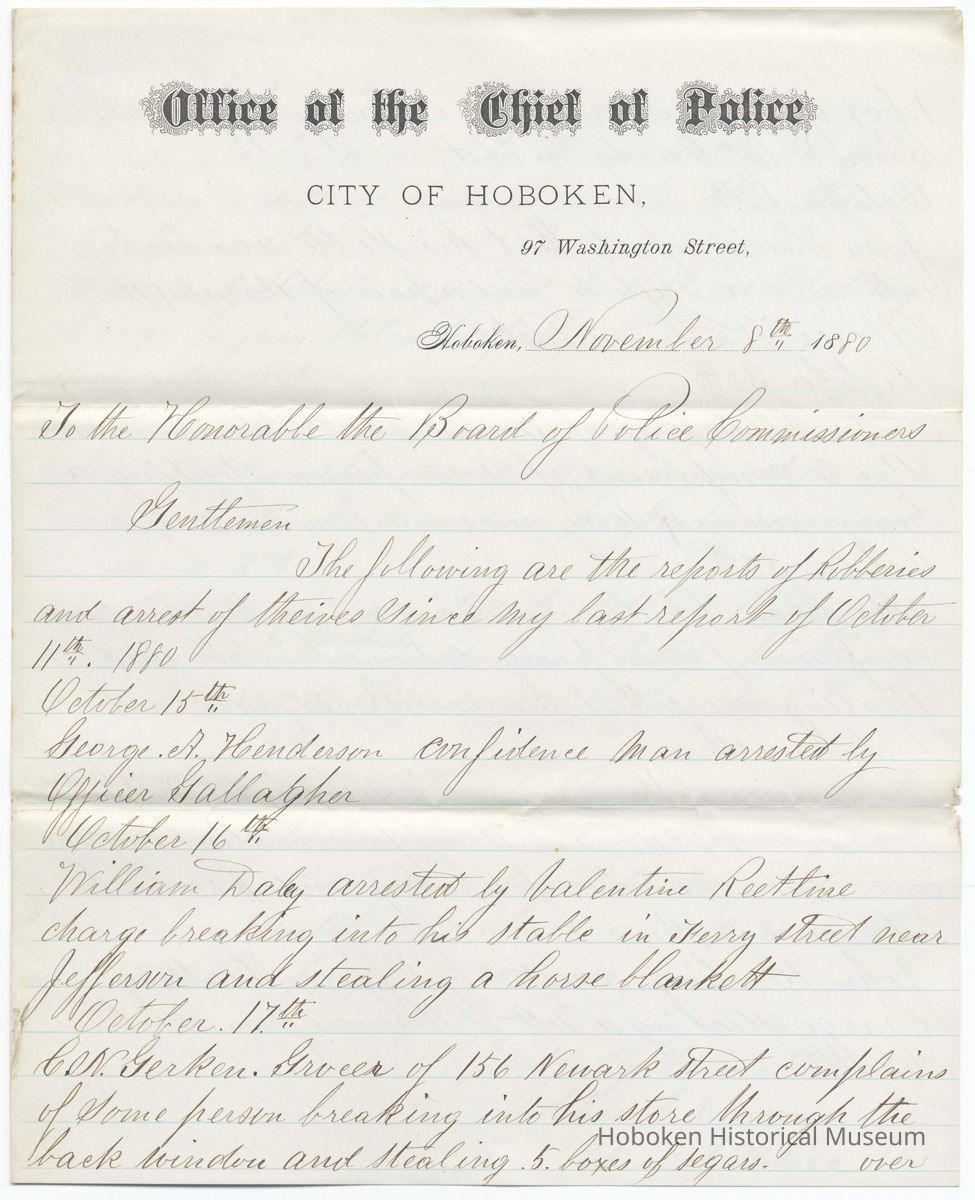 Office of the Chief of Police
CITY OF HOBOKEN,
97 Washington Street,
Hoboken, November 8th 1880
To the Honorable the Board of Police Commissioners
Gentlemen
The following are the reports of Robberies
and arrest of theives since my last report of October
11th. 1880
October 15th
George. A. Henderson confidence man arrested by
Officer Gallagher
October 16th
William Daley arrested by Valentine
charge breaking into his stable in Ferry street near
Jefferson and stealing a horse blankett
October. 17th
C.N. Gerken. Grocer of 156 Newark street complains
of some person breaking into his store through the
back window and stealing .5. boxes of segars. over
Hoboken Historical Museum